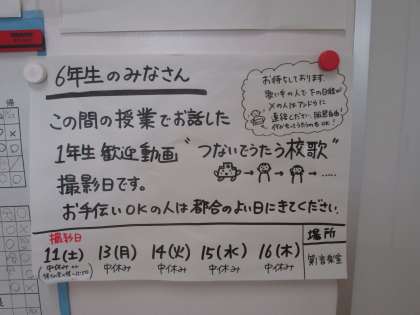 6年生のみなさん
この間の授業でお話した
1年生歓迎動画"つないでうたう校歌"
撮影日です。
お手伝いOKの人は都合のよい日にきてください。
お待ちしております。
歌い手の人で下の日程が
×の人は
撮影日
11(土) 13(月) 14(火) 15(水) 16(木)
中休み 中休み 中休み 中休み 中休み
場所
第1音楽室